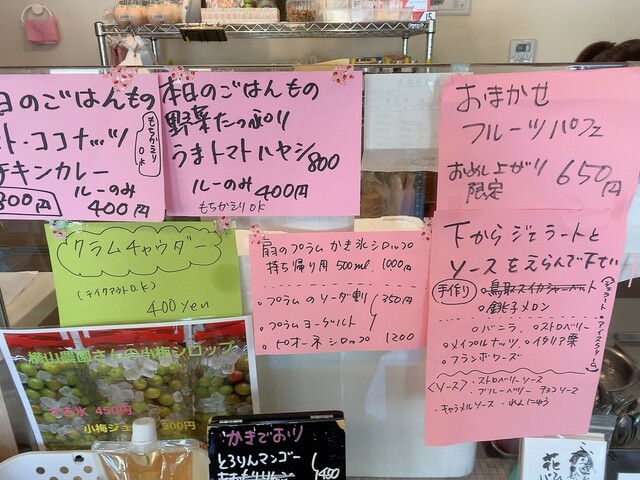 日のごはんもの
ト・ココナッツ
チキンカレー
もちかえりOK
800円
ルーのみ
400円
本日のごはんもの
野菜たっぷり
うまトマトハヤシ 800
ルーのみ 400円
もちかえりOK
おまかせ
フルーツパフェ
お召し上がり
限定
650円
クラムチャウダー
(テイクアウトO.K)
400yen
プラム かき氷シロップ
持ち帰り用 500ml 1000円
・プラムのソーダ割
350円
・プラムヨーグルト
・ピオーネシロップ 1200
下からジェラートと
ソースをえらんで下さい
手作り
・鳥取スイカシャーベット
・銚子メロン
・バニラ ・ストロベリー
・メイプルナッツ ・イタリア栗
・フランボワーズ
〈ソース〉・ストロベリーソース
・ブルーベリー チョコソース
・キャラメルソース ・れんにゅう
横山農園さんの小梅シロップ
かき氷 450円
小梅ジュース 300円
かきごおり
とろりんマンゴー
450
花